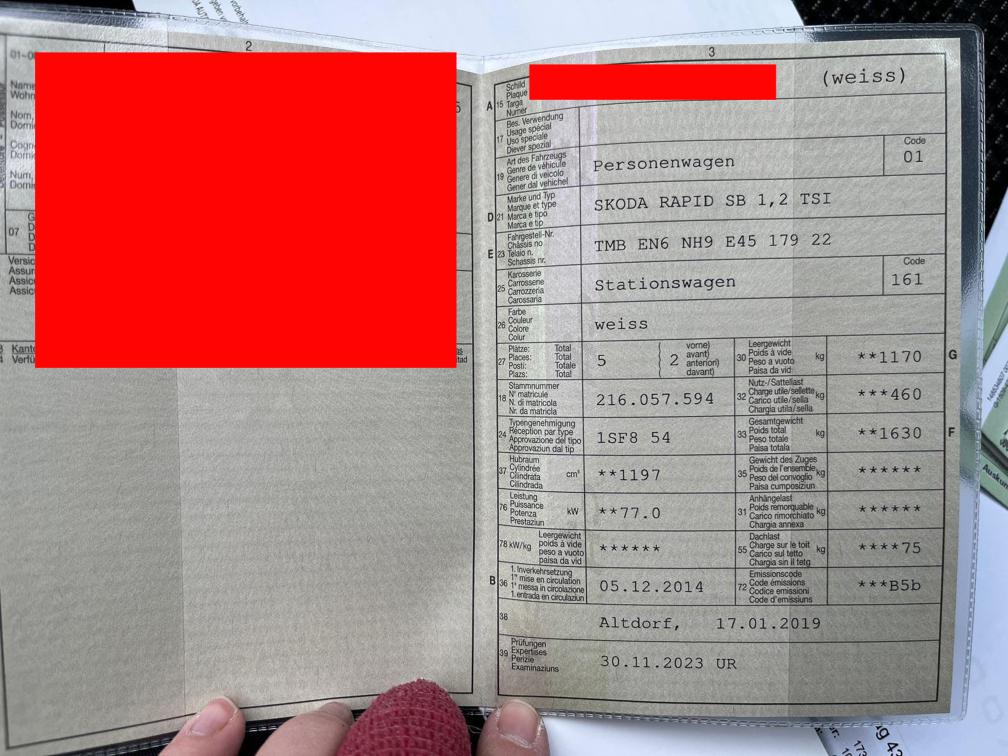 2
3
A
15
Schild
Plaque
Targa
Numer
(weiss)
17
Bes. Verwendung
Usage spécial
Uso speciale
Diever spezial
19
Art des Fahrzeugs
Genre de véhicule
Genere di veicolo
Gener dal vehichel
Personenwagen
Code
01
D
21
Marke und Typ
Marque et type
Marca e tipo
Marca e tip
SKODA RAPID SB 1,2 TSI
E
23
Fahrgestell-Nr.
Châssis no
Telaio n.
Schassis nr.
TMB EN6 NH9 E45 179 22
25
Karosserie
Carrosserie
Carrozzeria
Carossaria
Stationswagen
Code
161
26
Farbe
Couleur
Colore
Colur
weiss
27
Plätze: Total
Places: Total
Posti: Totale
Plazs: Total
5
( 2
vorne)
avant)
anteriori)
davant)
30
Leergewicht
Poids à vide
Peso a vuoto
Paisa da vid
kg
**1170
G
18
Stammnummer
N° matricule
N. di matricola
Nr. da matricla
216.057.594
32
Nutz-/Sattellast
Charge utile/sellette
Carico utile/sella
Chargia utila/sella
kg
***460
24
Typengenehmigung
Réception par type
Approvazione del tipo
Approvaziun dal tip
1SF8 54
33
Gesamtgewicht
Poids total
Peso totale
Paisa totala
kg
**1630
F
37
Hubraum
Cylindrée
Cilindrata
Cilindrada
cm³
**1197
35
Gewicht des Zuges
Poids de l'ensemble
Peso del convoglio
Paisa cumposiziun
kg
******
76
Leistung
Puissance
Potenza
Prestaziun
kW
**77.0
31
Anhängelast
Poids remorquable
Carico rimorchiato
Chargia annexa
kg
******
78 kW/kg
Leergewicht
poids à vide
peso a vuoto
paisa da vid
******
55
Dachlast
Charge sur le toit
Carico sul tetto
Chargia sin il tetg
kg
****75
B
36
1. Inverkehrsetzung
1re mise en circulation
1a messa in circolazione
1. entrada en circulaziun
05.12.2014
72
Emissionscode
Code émissions
Codice emissioni
Code d'emissiuns
***B5b
38
Altdorf, 17.01.2019
39
Prüfungen
Expertises
Perizie
Examinaziuns
30.11.2023 UR
07